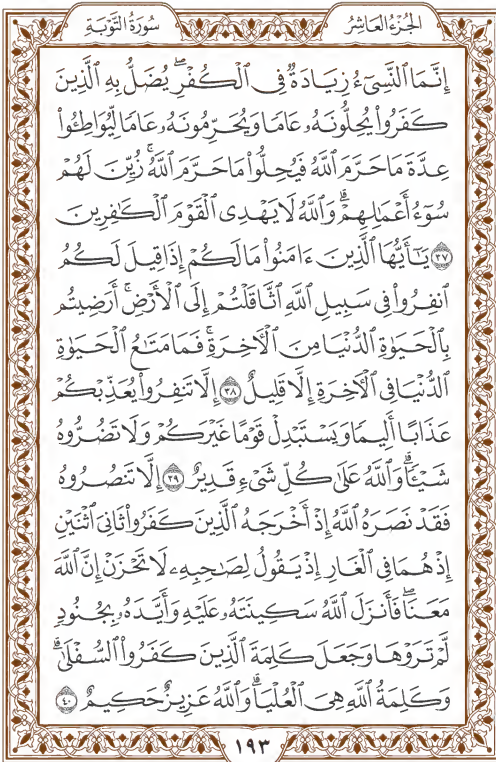 الجُزْءُ العَاشِرُ
سُورَةُ التَّوْبَةِ
إِنَّمَا ٱلنَّسِىٓءُ زِيَادَةٌ فِى ٱلْكُفْرِ ۖ يُضَلُّ بِهِ ٱلَّذِينَ
كَفَرُوا۟ يُحِلُّونَهُۥ عَامًا وَيُحَرِّمُونَهُۥ عَامًا لِّيُوَاطِـُٔوا۟
عِدَّةَ مَا حَرَّمَ ٱللَّهُ فَيُحِلُّوا۟ مَا حَرَّمَ ٱللَّهُ ۚ زُيِّنَ لَهُمْ
سُوٓءُ أَعْمَـٰلِهِمْ ۗ وَٱللَّهُ لَا يَهْدِى ٱلْقَوْمَ ٱلْكَـٰفِرِينَ
٣٧ يَـٰٓأَيُّهَا ٱلَّذِينَ ءَامَنُوا۟ مَا لَكُمْ إِذَا قِيلَ لَكُمُ
ٱنفِرُوا۟ فِى سَبِيلِ ٱللَّهِ ٱثَّاقَلْتُمْ إِلَى ٱلْأَرْضِ ۚ أَرَضِيتُم
بِٱلْحَيَوٰةِ ٱلدُّنْيَا مِنَ ٱلْـَٔاخِرَةِ ۚ فَمَا مَتَـٰعُ ٱلْحَيَوٰةِ
ٱلدُّنْيَا فِى ٱلْـَٔاخِرَةِ إِلَّا قَلِيلٌ ٣٨ إِلَّا تَنفِرُوا۟ يُعَذِّبْكُمْ
عَذَابًا أَلِيمًا وَيَسْتَبْدِلْ قَوْمًا غَيْرَكُمْ وَلَا تَضُرُّوهُ
شَيْـًٔا ۗ وَٱللَّهُ عَلَىٰ كُلِّ شَىْءٍ قَدِيرٌ ٣٩ إِلَّا تَنصُرُوهُ
فَقَدْ نَصَرَهُ ٱللَّهُ إِذْ أَخْرَجَهُ ٱلَّذِينَ كَفَرُوا۟ ثَانِىَ ٱثْنَيْنِ
إِذْ هُمَا فِى ٱلْغَارِ إِذْ يَقُولُ لِصَـٰحِبِهِۦ لَا تَحْزَنْ إِنَّ ٱللَّهَ
مَعَنَا ۖ فَأَنزَلَ ٱللَّهُ سَكِينَتَهُۥ عَلَيْهِ وَأَيَّدَهُۥ بِجُنُودٍ
لَّمْ تَرَوْهَا وَجَعَلَ كَلِمَةَ ٱلَّذِينَ كَفَرُوا۟ ٱلسُّفْلَىٰ ۗ
وَكَلِمَةُ ٱللَّهِ هِىَ ٱلْعُلْيَا ۗ وَٱللَّهُ عَزِيزٌ حَكِيمٌ ٤٠
١٩٣